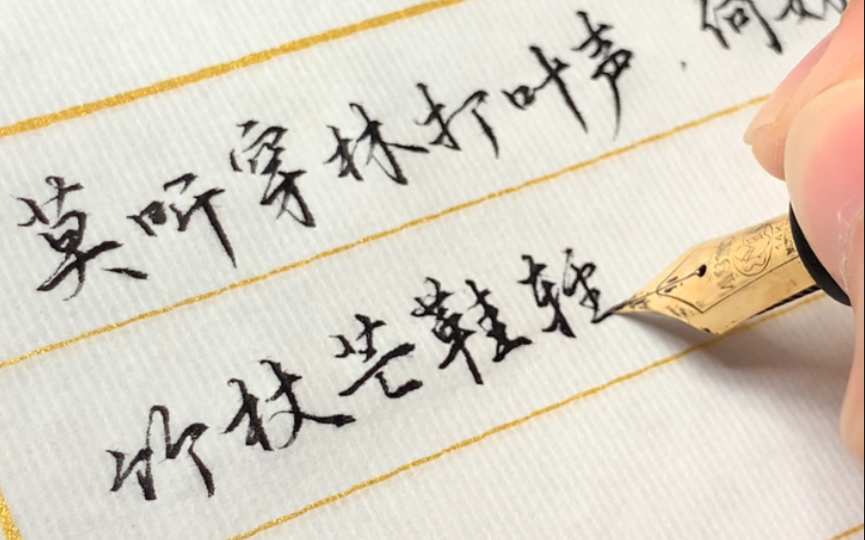 莫听穿林打叶声，何妨
竹杖芒鞋轻